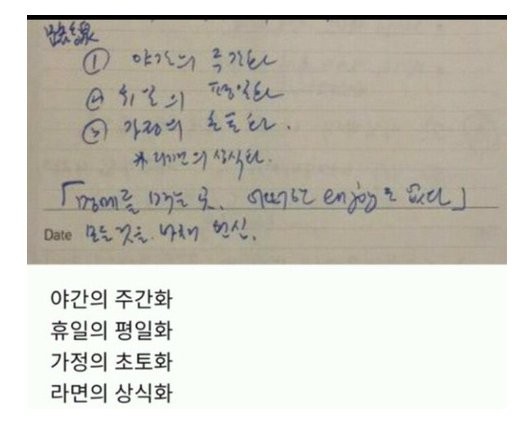 ① 야간의 주간화
② 휴일의 평일화
③ 가정의 초토화.
※ 라면의 상식화.
「명예를 먹는 곳. 어떠한 enjoy도 없다」
Date 모든 것을 바쳐 헌신.
야간의 주간화
휴일의 평일화
가정의 초토화
라면의 상식화